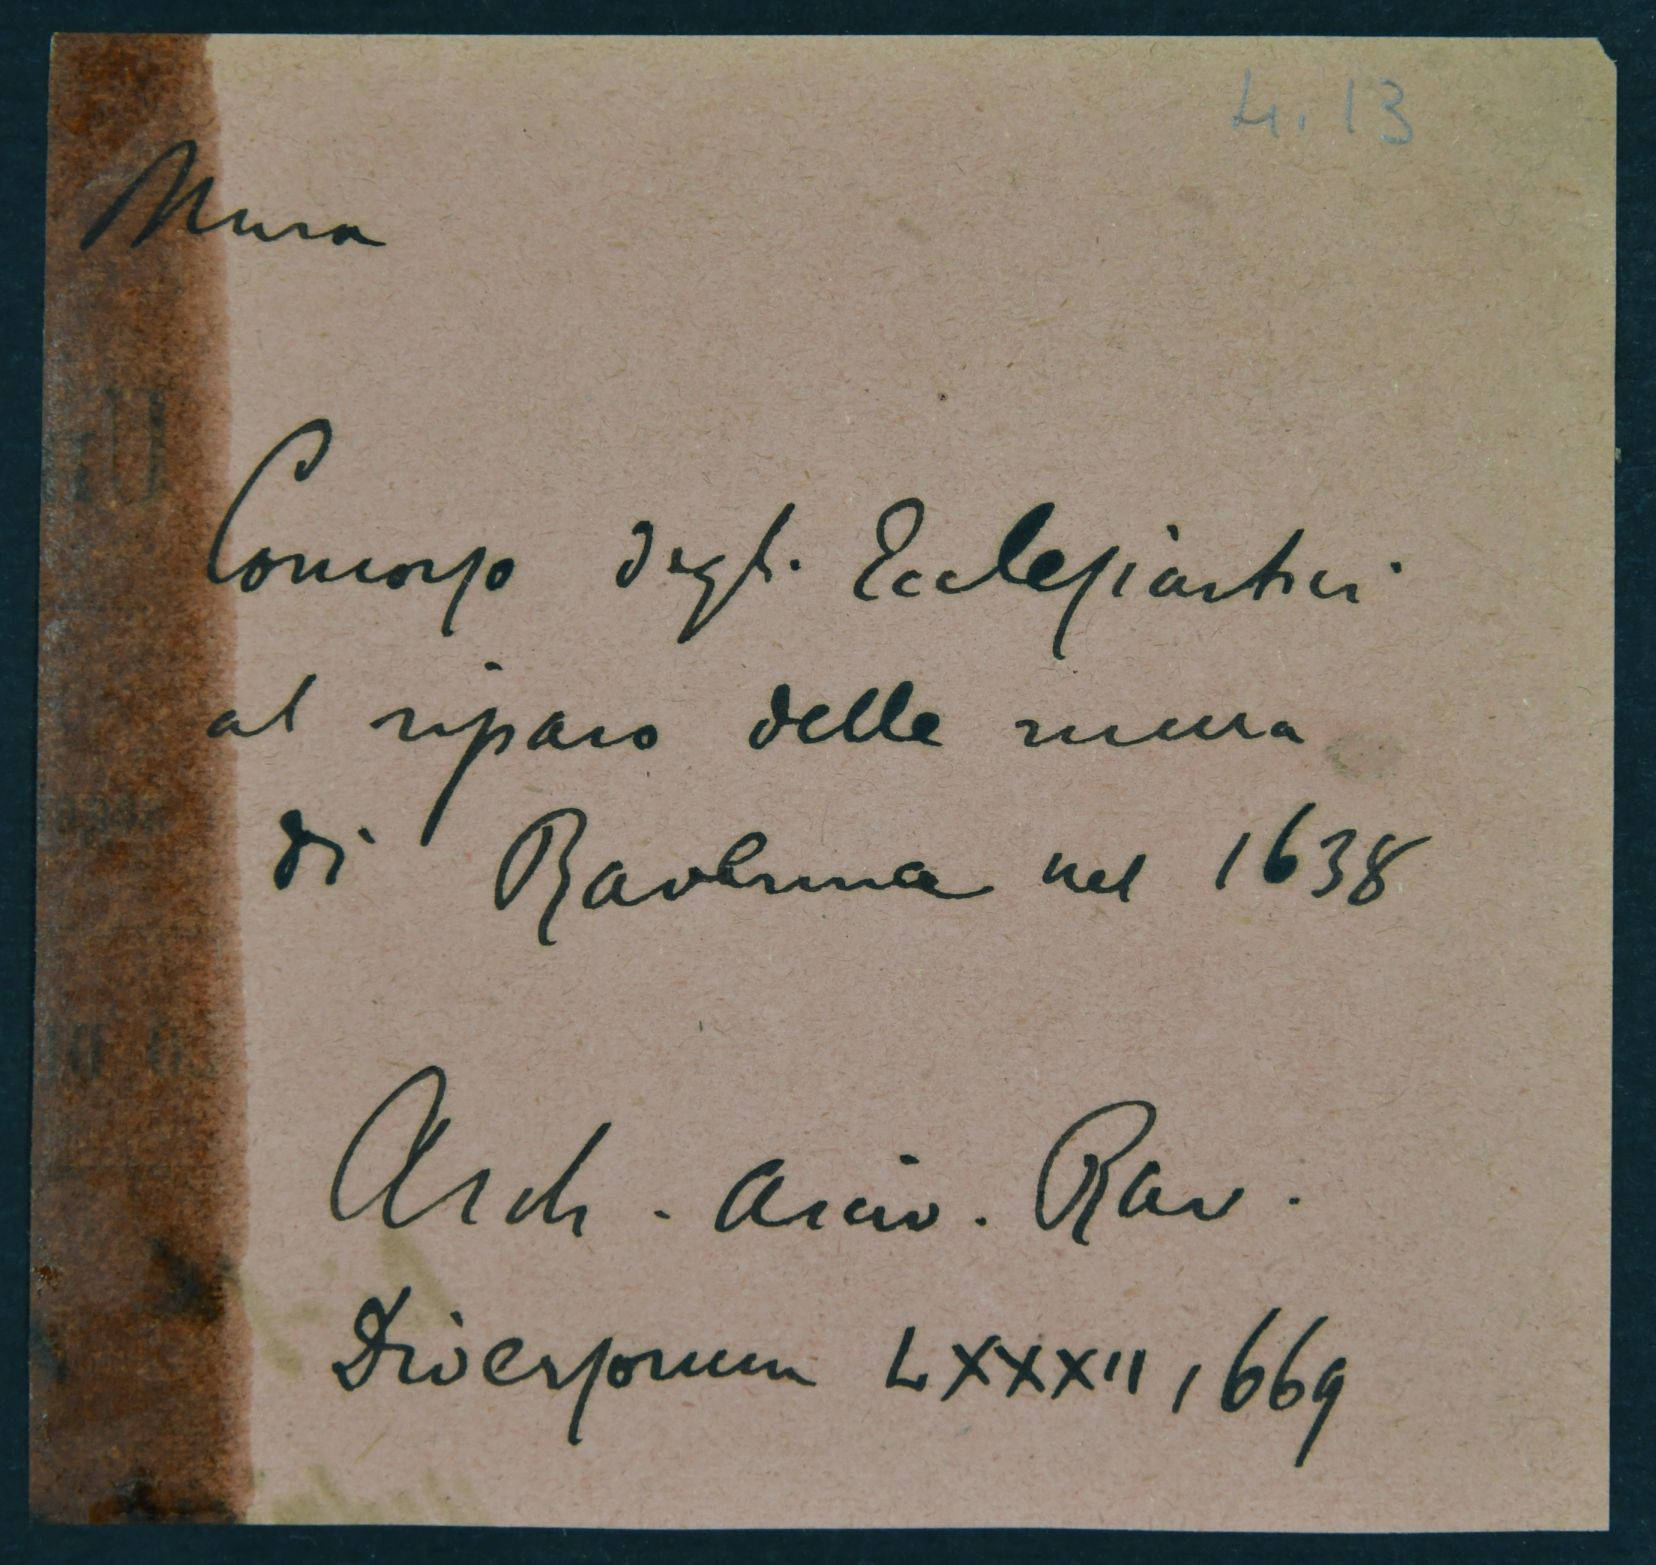 4.13
Mura
Concorso degli Ecclesiastici
al riparo delle mura
di Ravenna nel 1638
Arch. arciv. Rav.
Diversorum LXXXII, 669